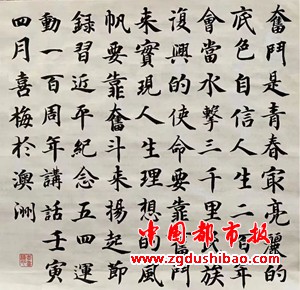 奮鬥是青春最亮麗的
底色自信人生二百年
會當水擊三千里民族
復興的使命要靠奮鬥
來實現人生理想的風
帆要靠奮斗来揚起節
録習近平紀念五四運
動一百周年講話壬寅
四月喜梅於澳洲
中國都市報
www.zgdushiw.com